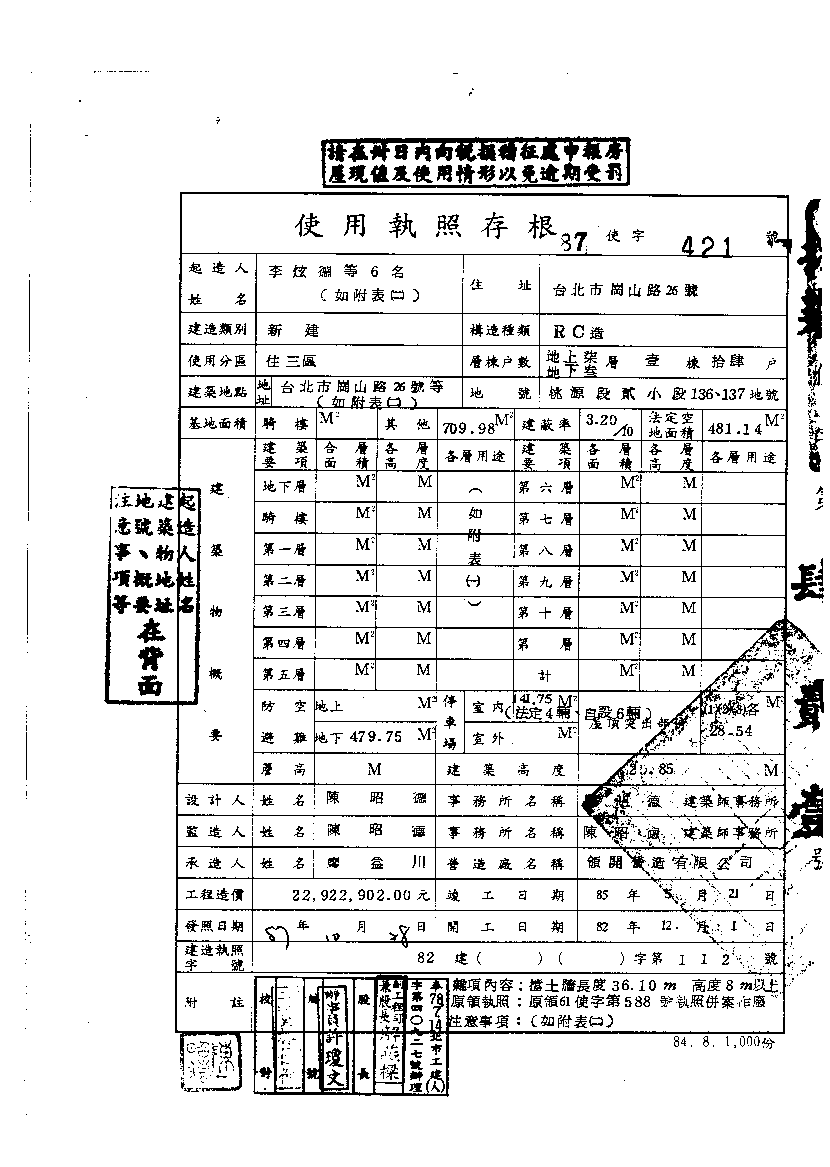 請在卅日內向稅捐稽征處申報房
屋現值及使用情形以免逾期受罰
使用執照存根 87 使字 421 號
起造人 李炫 等6名 住址 台北市岡山路26號
姓名 (如附表㈡)
建造類別 新建 構造種類 RC造
使用分區 住三區 層棟戶數 地上柒層 壹棟 拾肆戶
地下叁
建築地點 地址 台北市岡山路26號等 地號 桃源段貳小段136、137地號
(如附表㈡)
基地面積 騎樓 M² 其他 709.98M² 建蔽率 3.20/10 法定空地面積 481.14M²
建築要項 合層面積 各層高度 各層用途 建築要項 各層面積 各層高度 各層用途
建築物概要
地下層 M² M 第六層 M² M
騎樓 M² M 第七層 M² M
第一層 M² M 第八層 M² M
第二層 M² M 第九層 M² M
第三層 M² M 第十層 M² M
第四層 M² M 第 層 M² M
第五層 M² M 計 M² M
(如附表㈠)
防空避難 地上 M² 停車場 室內 141.75 M² M²
(法定4輛、自設6輛)
地下 479.75 M² 室外 M² 28.54
層高 M 建築高度 .85 M
設計人 姓名 陳昭 事務所名稱 建築師事務所
監造人 姓名 陳昭 事務所名稱 陳昭 建築師事務所
承造人 姓名 益川 營造廠名稱 領開營造有限公司
工程造價 22,922,902.00元 竣工日期 85年 月21日
發照日期 87年10月28日 開工日期 82年12月1日
建造執照字號 82建( )( )字第112號
附註 雜項內容:擋土牆長度36.10m 高度8m以上
原領執照:原領61使字第588號執照併案作廢
注意事項:(如附表㈡)
起造人姓名
建築物地址
地號、概要
注意事項等
在背面
校對
編號
許瓊文
股長
奉78.7.14北市工建(人)
字第四〇九二七號辦理
84.8.1,000份
第
肆
貳
壹
號